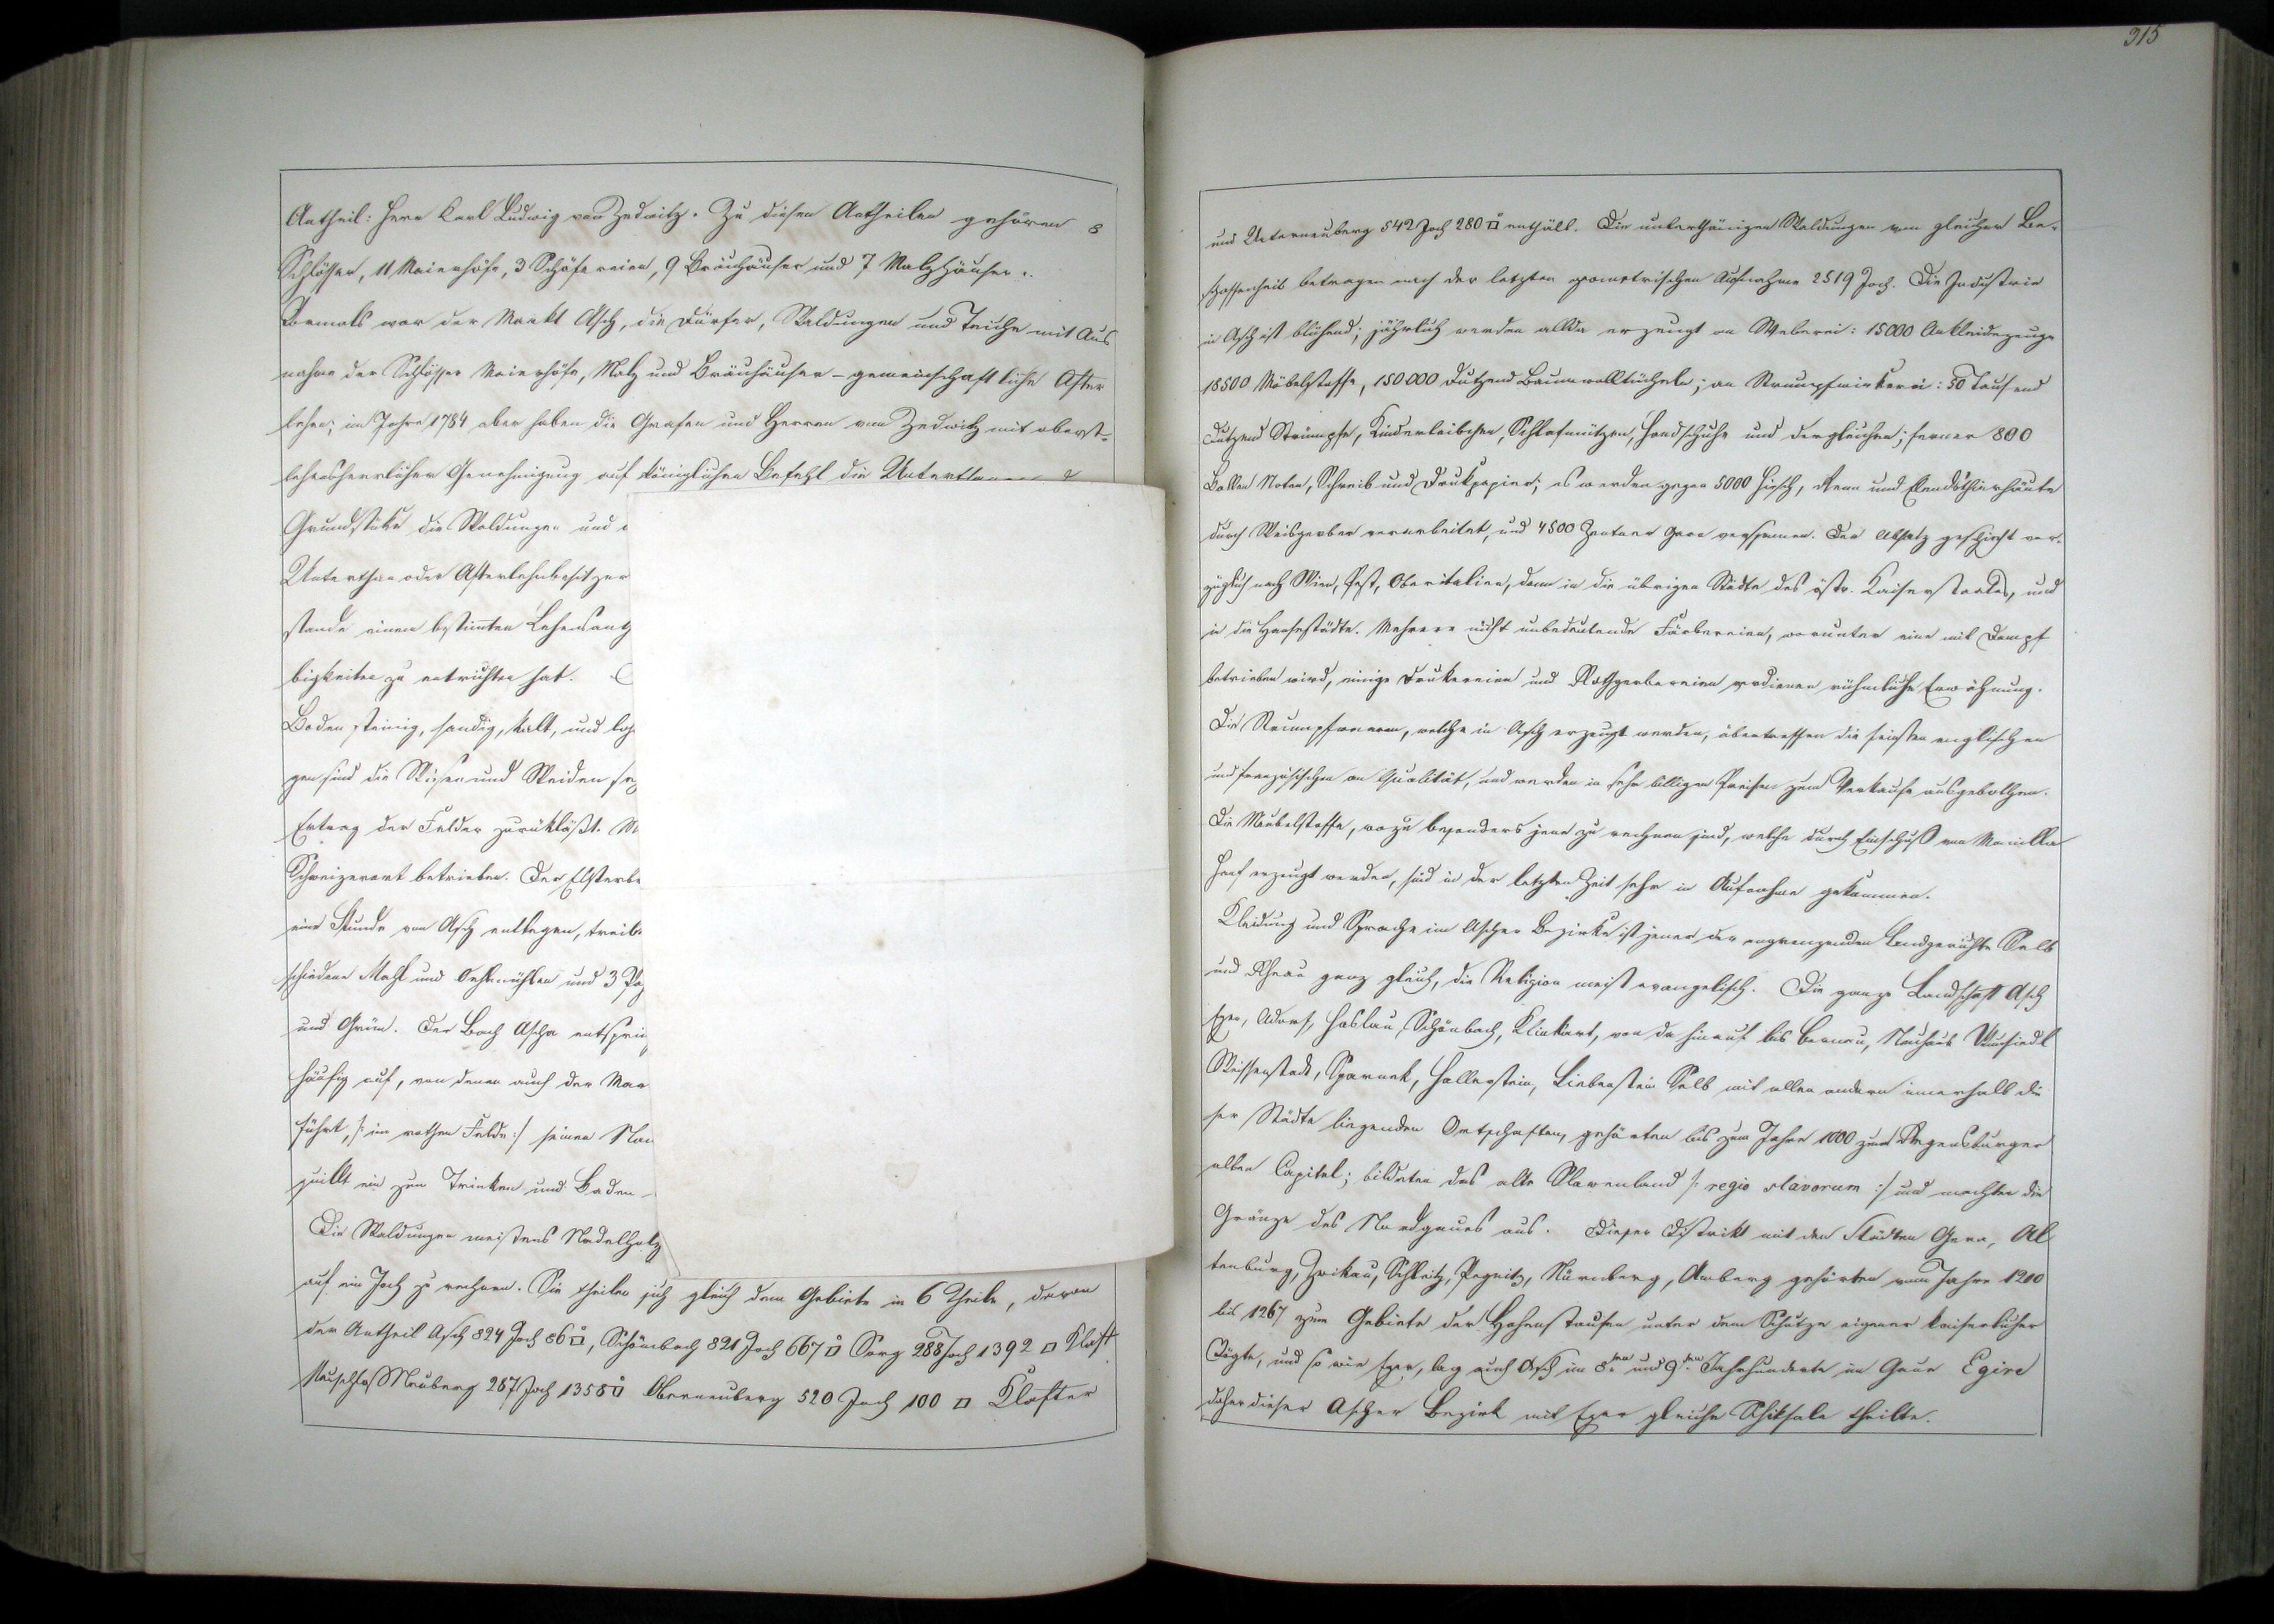 315
Antheil: Herr Karl Ludwig von Zedwitz. Zu diesen Antheilen gehören 8
Schlösser, 11 Maierhöfe, 3 Schäfereien, 9 Bräuhäuser und 7 Malzhäuser.
Vormals war der Markt Asch, die Dörfer, Waldungen und Teiche mit Aus
nahme der Schlösser Maierhöfe, Malz und Bräuhäuser – gemeinschaftliche After
lehen; im Jahre 1784 aber haben die Grafen und Herren von Zedwitz mit oberst-
lehensherrlicher Genehmigung auf königlichen Befehl die
Grundstüke die Waldungen und
Unterthan oder Afterlehnbesitzer
stande einen bestimten
bigkeiten zu entrichten hat.
Boden steinig, sandig, kalt, und
gen sind die Wiesen und Weiden
Ertrag der Felder zurükläßt.
Schweizerart betrieben. Der
eine Stunde von Asch entlegen,
schiedene Mahl und Oehlmühlen und 3
und Grün. Der Bach Ascha
häufig auf, von denen auch der
führt, /: im rothen Felde :/ seinen
quillt ein zum Trinken und Baden
Die Waldungen meistens Nadelholz
auf ein Joch zu rechnen. Sie theilen sich gleich dem Gebiete in 6 Theile, davon
der Antheil Asch 824 Joch 86 □°, Schönbach 821 Joch 667 □° Sorg 288 Joch 1392 □ Klaft
Neuschloß Neuberg 267 Joch 1358 □° Oberneuberg 520 Joch 100 □ Klafter
und Unterneuberg 542 Joch 280 □° enthält. Die unterthänigen Waldungen von gleicher Be-
schaffenheit betragen nach der letzten geometrischen Aufnahme 2519 Joch. Die Industrie
in Asch ist blühend; jährlich werden allda erzeugt an Weberei: 15000 Ankleidezeuge
18500 Möbelstoffe, 150000 Dutzend Baumwolltücheln; an Strumpfwirkerei: 50 Tausend
Dutzend Strümpfe, Kinderleibchen, Schlafmützen, Handschuhe und dergleichen; ferner 800
Ballen Noten, Schreib und Drukpapier; es werden gegen 5000 Hirsch, Renn und Elendsthierhäute
durch Weisgerber verarbeitet, und 4500 Zentner Garn versponnen. Der Absatz geschieht vor-
züglich nach Wien, Pest, Oberitalien, dann in die übrigen Städte des östr. Kaiserstaates, und
in die Hansestädte. Mehrere nicht unbedeutende Färbereien, worunter eine mit Dampf
betrieben wird, einige Drukereien und Rothgerbereien verdienen rühmliche Erwähnung.
Die Strumpfwaaren, welche in Asch erzeugt werden, übertreffen die feinsten englischen
und französischen an Qualität, und werden in sehr billigen Preisen zum Verkaufe ausgebothen.
Die Möbelstoffe, wozu besonders jene zu rechnen sind, welche durch Einschuß von Manilla
Hanf erzeugt werden, sind in der letzten Zeit sehr in Aufnahme gekommen.
Kleidung und Sprache im Ascher Bezirke ist jener der angrenzenden Landgerichte Selb
und Rehau ganz gleich, die Religion meist evangelisch. Die ganze Landschaft Asch
Eger, Adorf, Haslau, Schönbach, Klinkart, von da hinauf bis Bernau, Neuhaus Wunsiedl
Weissenstadt, Sparnek, Hallerstein, Liebenstein Selb mit allen andern innerhalb die
ser Städte liegenden Ortschaften, gehörten bis zum Jahre 1000 zum Regensburger
alten Capitel; bildeten das alte Slawenland /: regio slavorum :/ und machten die
Gränze des Nordgaues aus. Dieser Distrikt mit den Städten Gera, Al
tenburg, Zwikau, Schleitz, Pegnitz, Nürnberg, Amberg gehörten vom Jahre 1200
bis 1267 zum Gebiete der Hohenstaufen unter dem Schutze eigener kaiserlicher
Vögte, und so wie Eger, lag auch Asch im 8ten und 9ten Jahrhunderte im Gaue Egire
daher dieser Ascher Bezirk mit Eger gleiche Schiksale theilte.